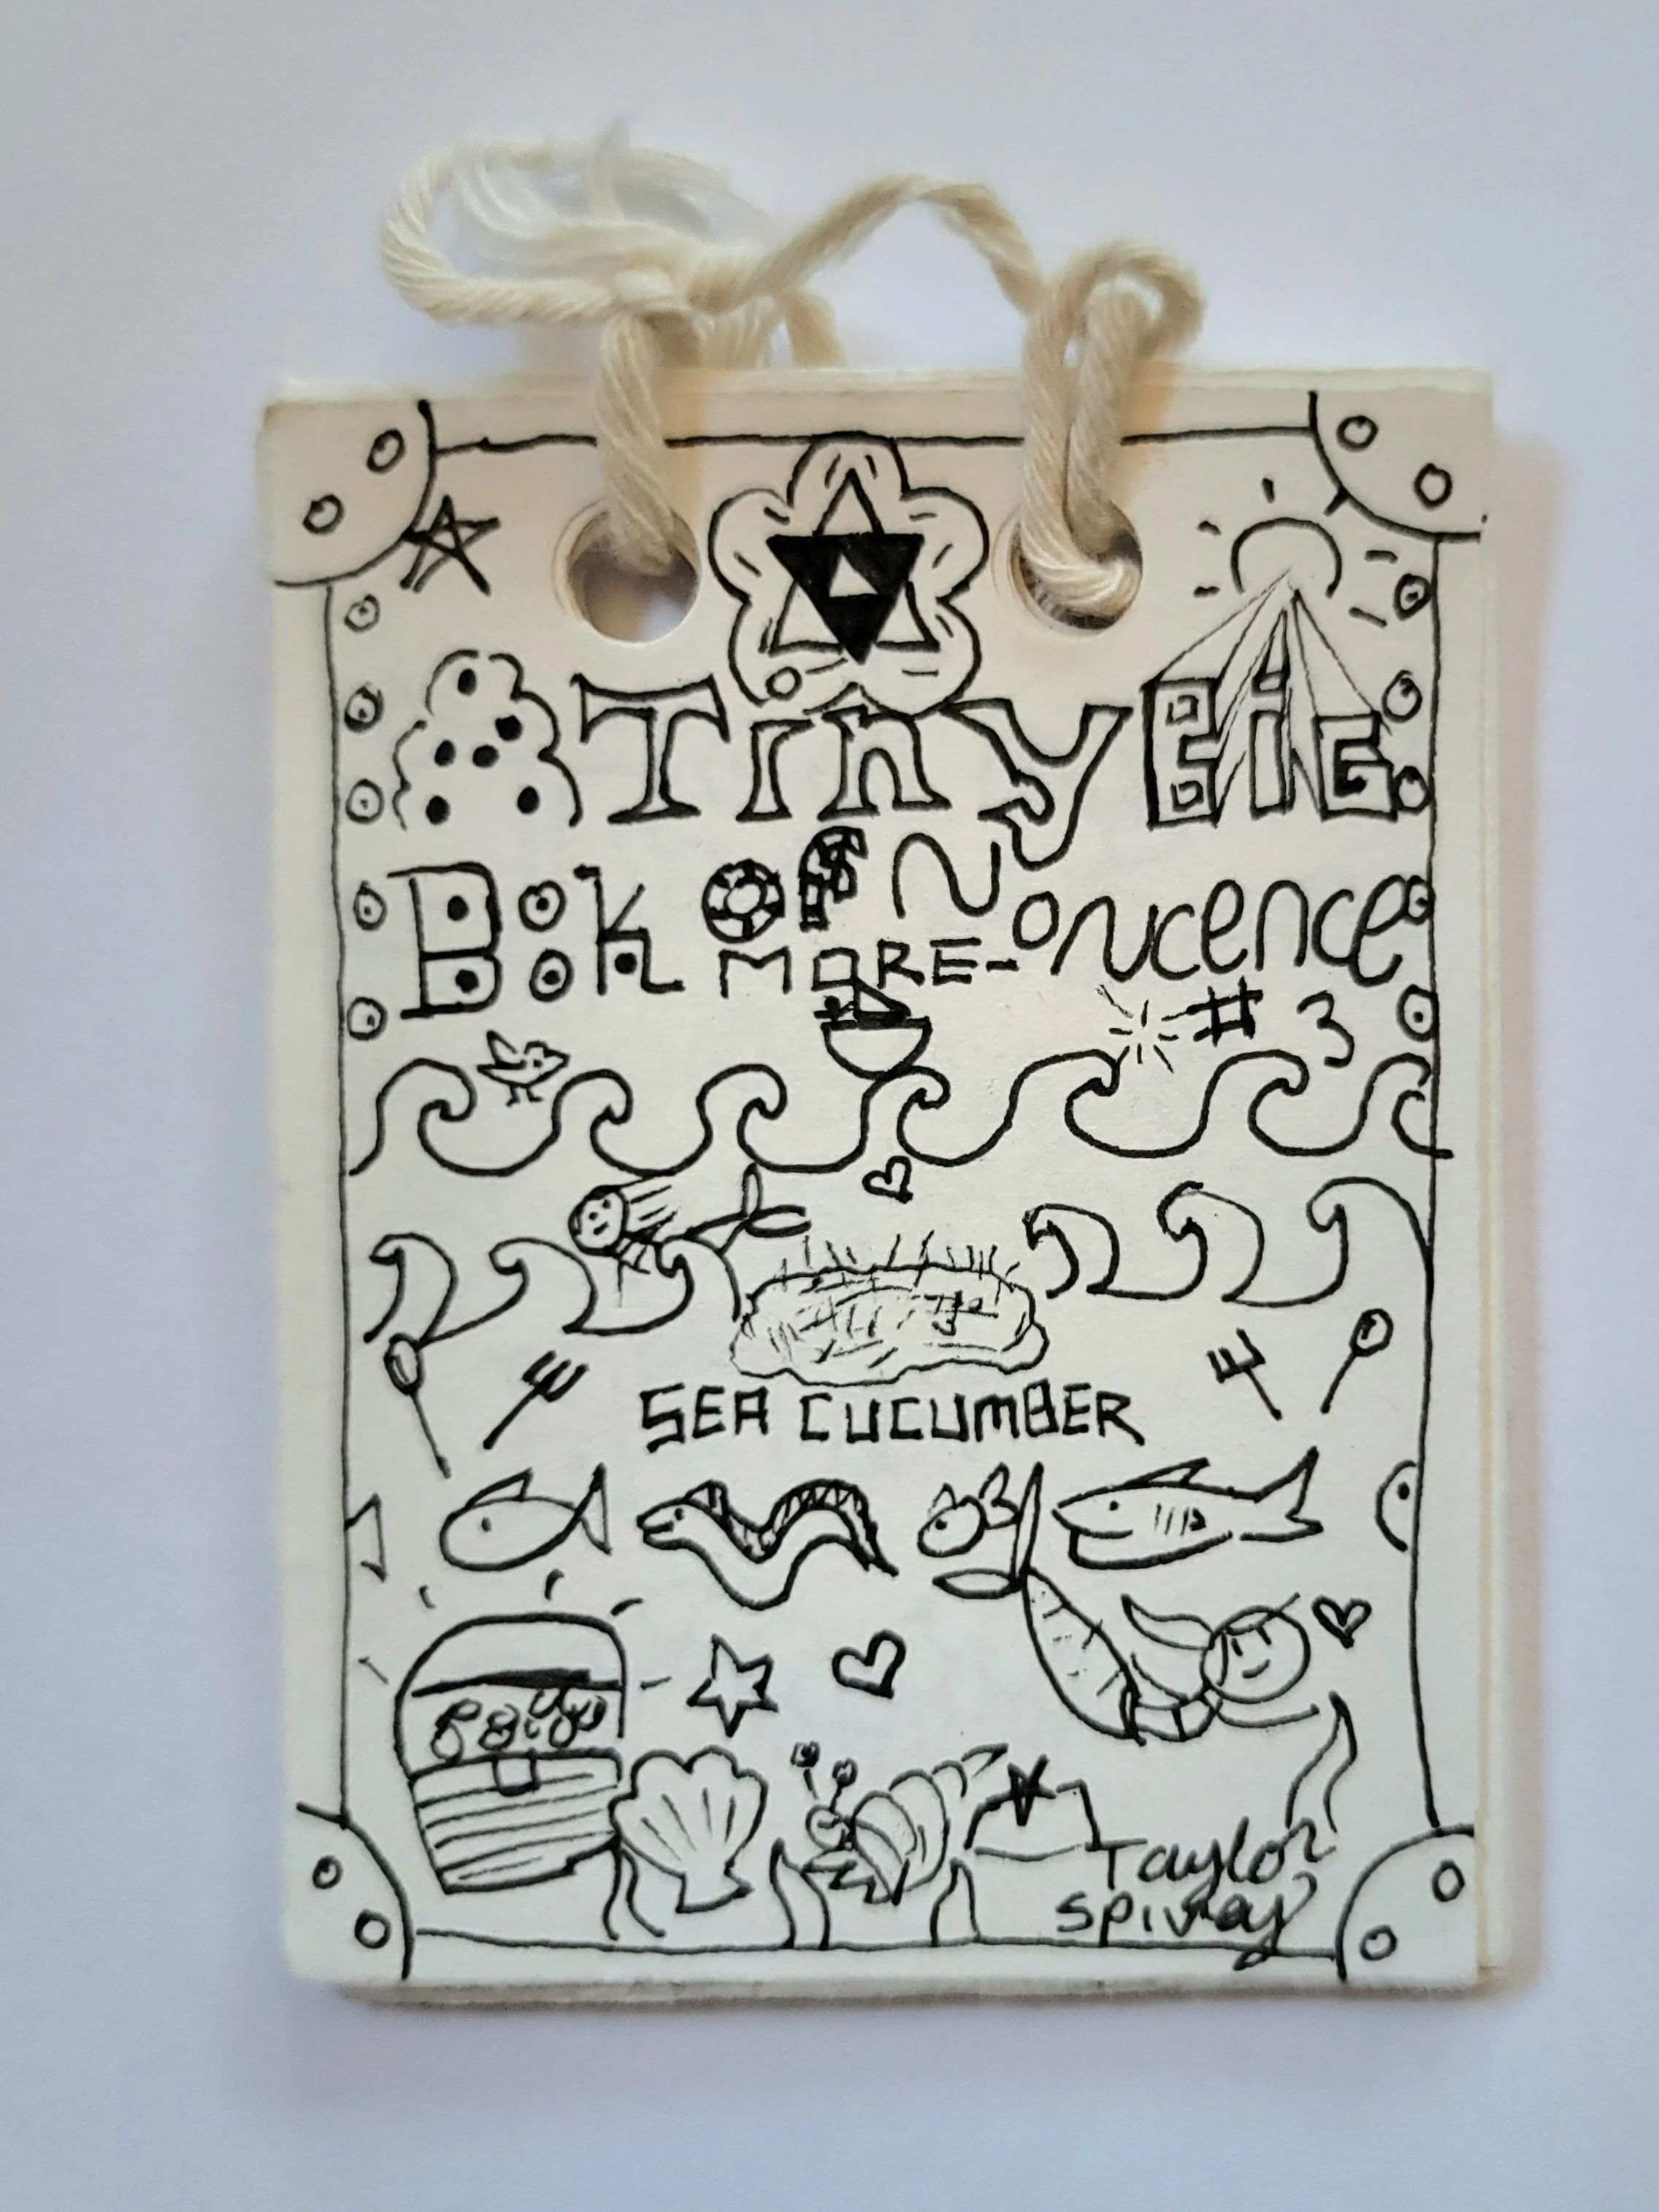 Tiny BiG
BooK OF N-oncence
MORE-
# 3
SEA CUCUMBER
Taylor
Spivey